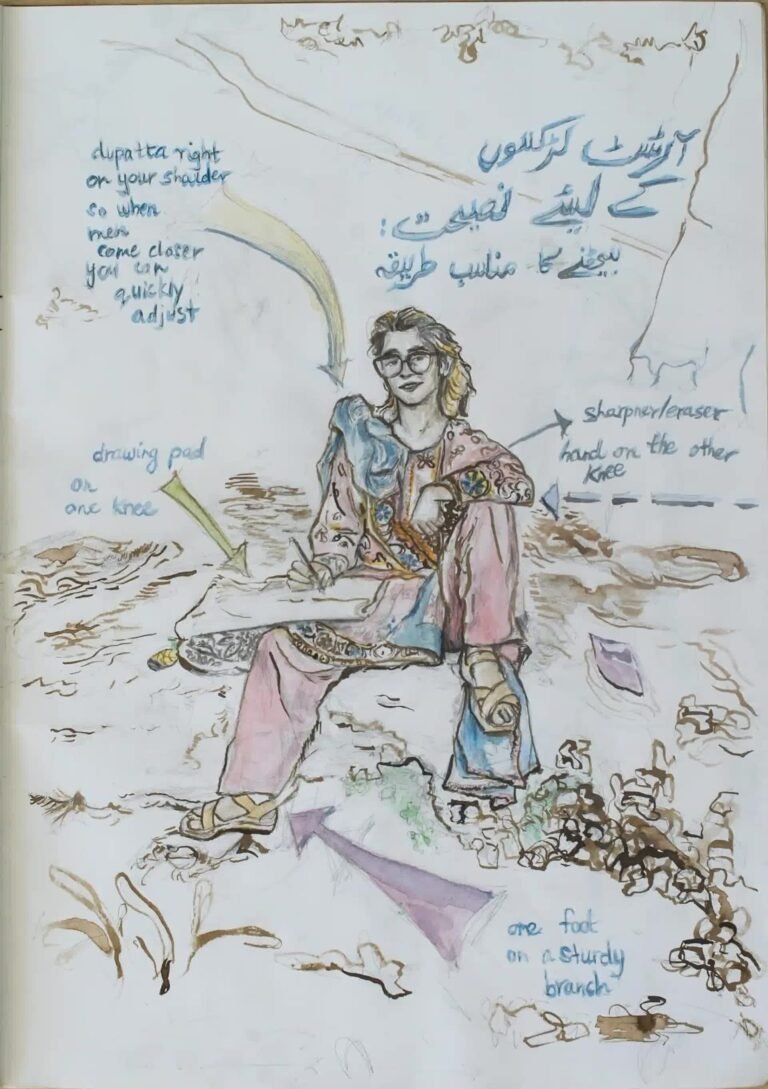 آرٹسٹ لڑکیوں
کے لیئے نصیحت:
بیٹھنے کا مناسب طریقہ
dupatta right
on your shaulder
so when
men
come closer
you can
quickly
adjust
sharpner/eraser
hand on the other
knee
drawing pad
on
one knee
one foot
on a sturdy
branch